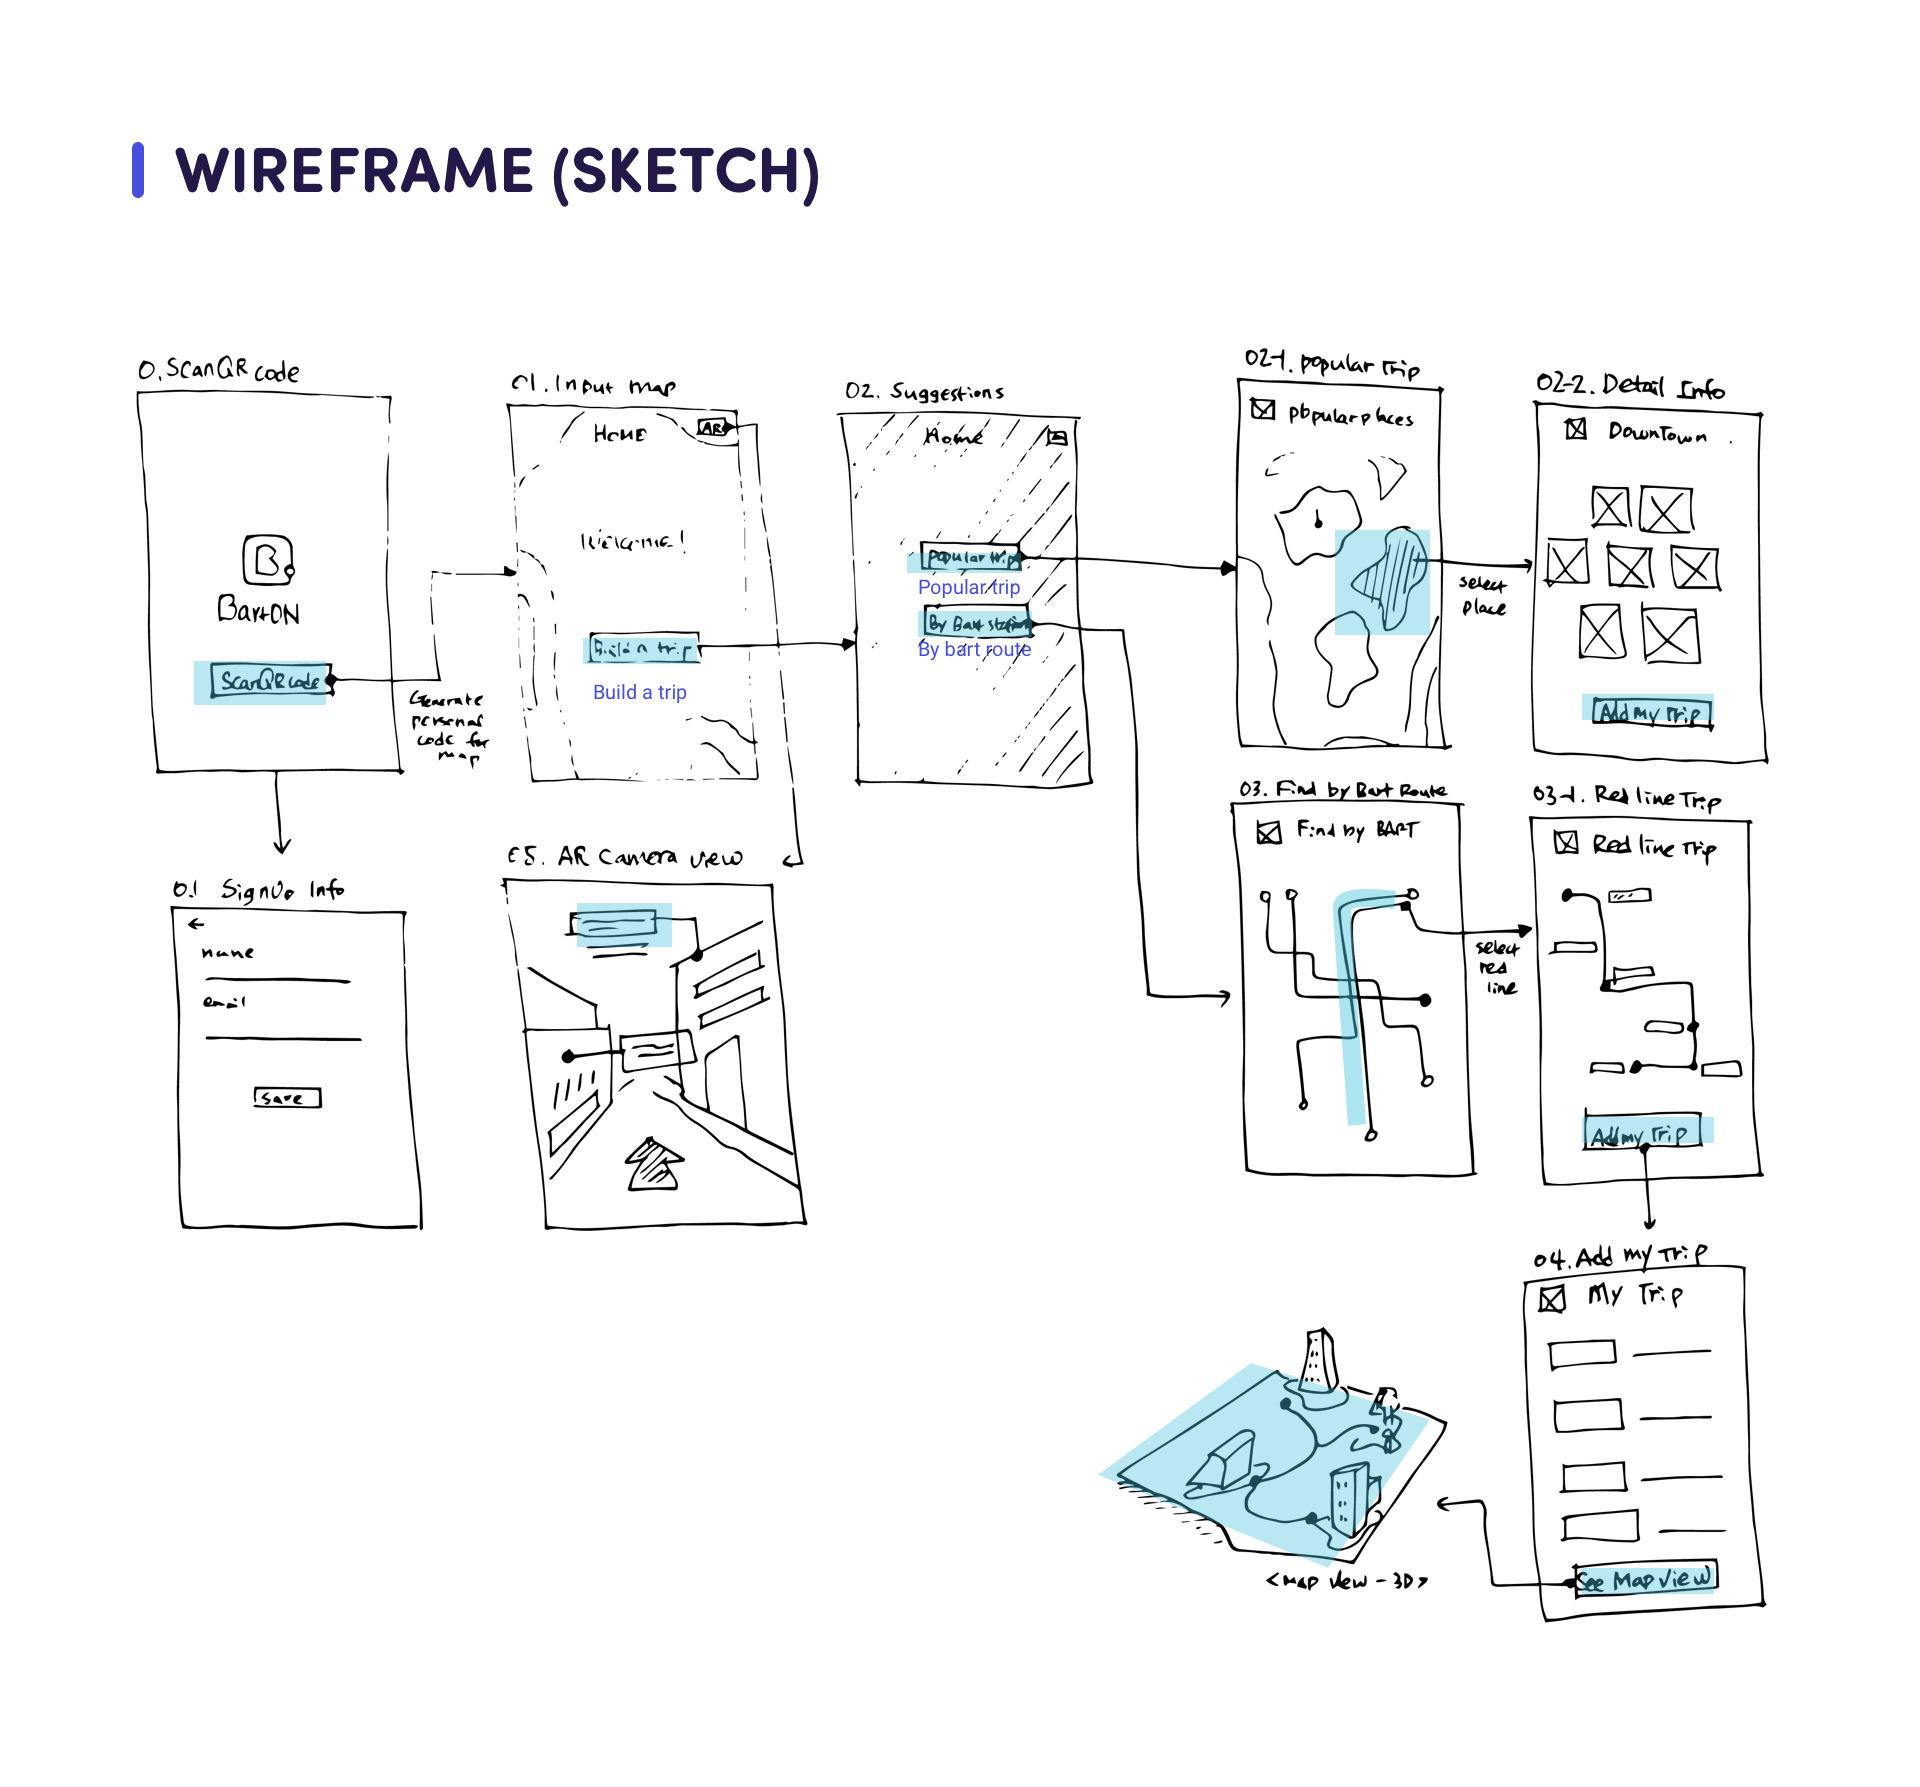 WIREFRAME (SKETCH)
0. Scan QR code
BartON
Scan QR code
Generate
personal
code for
map
01. Input map
HOME
AR
Welcome!
Build a trip
Build a trip
02. Suggestions
Home
Popular trip
Popular trip
By Bart station
By bart route
02-1. popular Trip
popular places
select
place
02-2. Detail Info
DownTown
Add my Trip
0.1 SignUp Info
name
email
save
05. AR Camera view
03. Find by Bart Route
Find by BART
select
red
line
03-1. Red line Trip
Red line Trip
Add my Trip
04. Add my Trip
My Trip
See Map View
<map view - 3D>